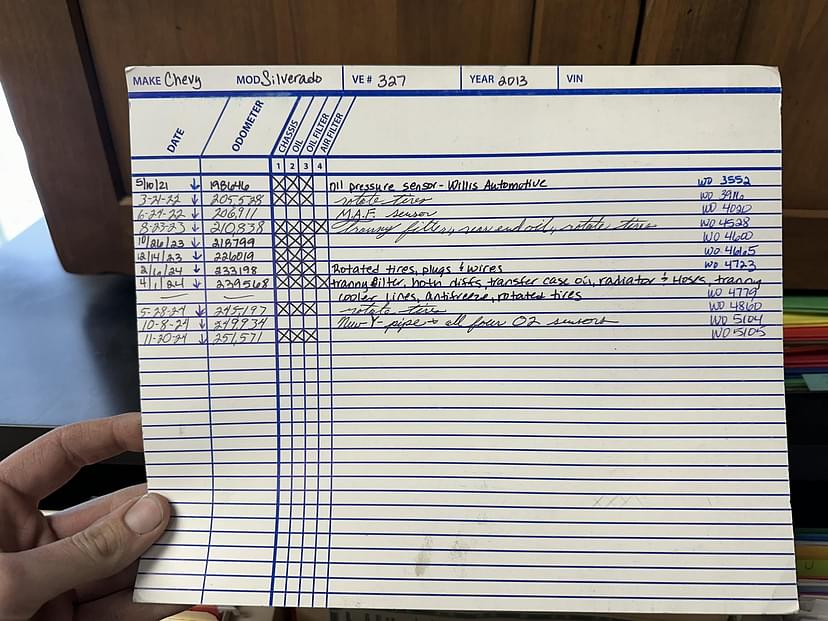 MAKE Chevy MOD Silverado VE# 327 YEAR 2013 VIN
DATE ODOMETER CHASSIS OIL OIL FILTER AIR FILTER
1 2 3 4
5/10/21 ↓ 198646 X X X oil pressure sensor - Willis Automotive WO 3552
3-21-22 ↓ 205,528 X X X rotate tires WO 3916
6-27-22 ↓ 206,911 M.A.F sensor WO 4020
8-23-23 ↓ 210,838 X X X X tranny filter, rear end oil, rotate tires WO 4528
10/26/23 ↓ 218799 X X X WO 4600
12/14/23 ↓ 226019 X X X WO 4665
2/6/24 ↓ 233198 X X X Rotated tires, plugs & wires WO 4723
4/1/24 ↓ 239568 X X X X tranny filter, both diffs, transfer case oil, radiator & Hoses, tranny
cooler lines, antifreeze, rotated tires WO 4779
5-28-24 ↓ 245,197 X X X rotate tires WO 4860
10-8-24 ↓ 249,934 New Y-pipe & all four O2 sensors WO 5104
11-20-24 ↓ 251,571 X X X WO 5105